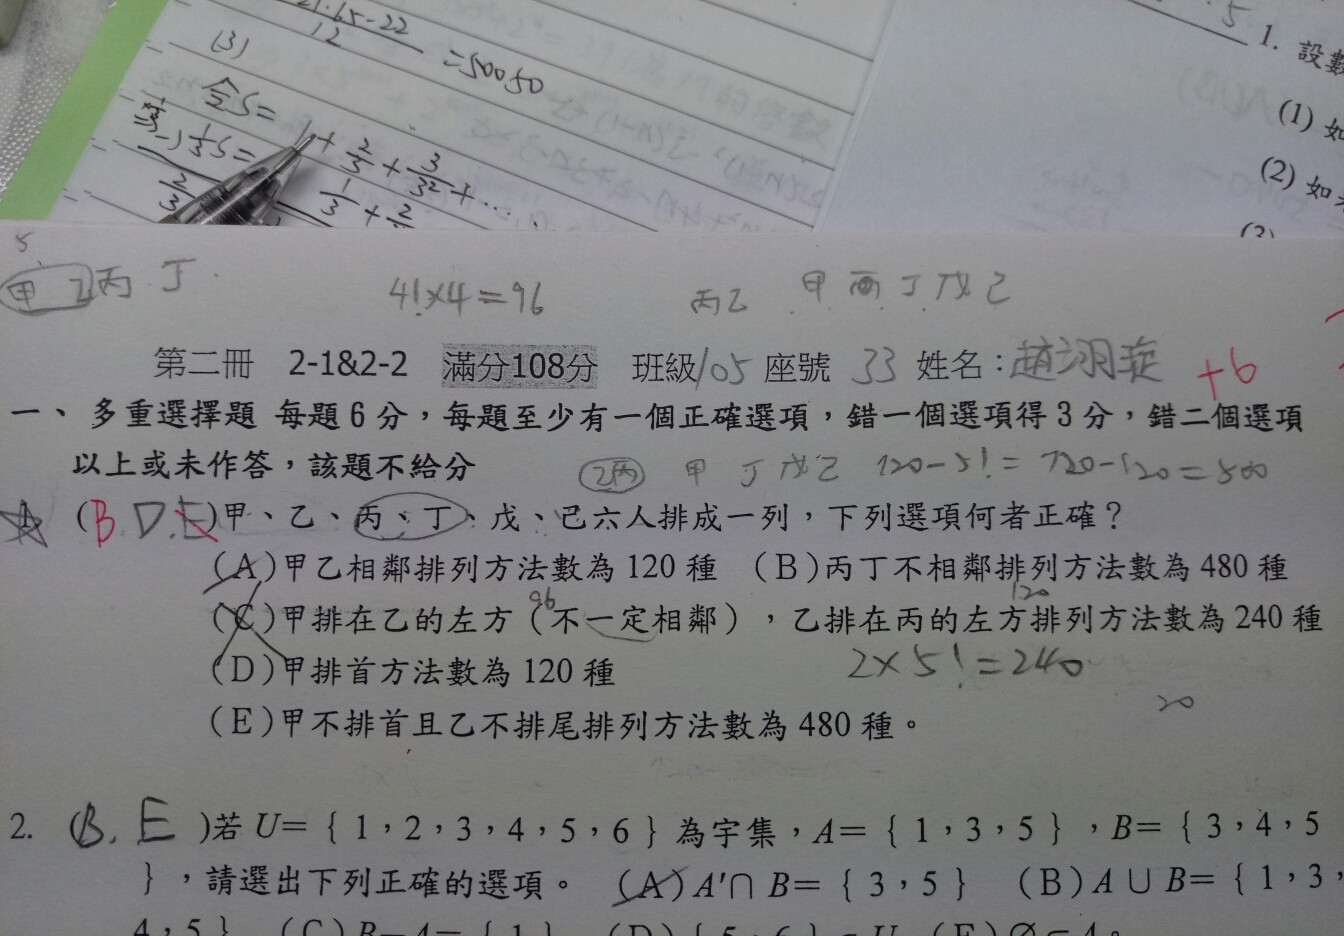 21·65-22
12
=50050
(3)
令S= 1+2/3+3/3²+…
-) 1/3 S=
1/3+2/
2/3
1. 設數
(1) 如
(2) 如
(3)
5
甲 乙丙 丁
4!×4=96
丙乙 甲 丁戊己
第二冊 2-1&2-2 滿分108分 班級105 座號 33 姓名:趙翊琁 +6
一、 多重選擇題 每題 6 分,每題至少有一個正確選項,錯一個選項得 3 分,錯二個選項
以上或未作答,該題不給分 乙丙 甲 丁戊己
(B D.E)甲、乙、丙、丁、戊、己六人排成一列,下列選項何者正確?
(A)甲乙相鄰排列方法數為 120 種 (B)丙丁不相鄰排列方法數為 480 種
96 120
(C)甲排在乙的左方(不一定相鄰),乙排在丙的左方排列方法數為 240 種
(D)甲排首方法數為 120 種 2×5!=240
20
(E)甲不排首且乙不排尾排列方法數為 480 種。
2. (B. E )若 U={ 1,2,3,4,5,6 }為宇集,A={ 1,3,5 },B={ 3,4,5
},請選出下列正確的選項。 (A)A'∩B={ 3,5 } (B)A∪B={ 1,3,
4,5 } (C)B-A={ 1 } (D){ 5,6 }